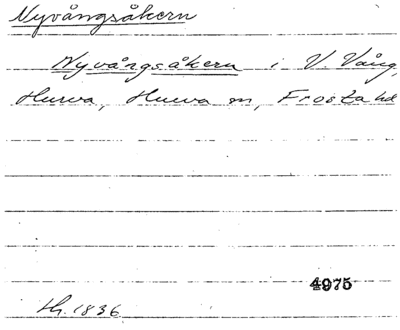 Nyvångsåkern
Nyvångsåkern i V. Vång,
Hurva, Hurva sn, Frosta hd
4975
LH. 1836